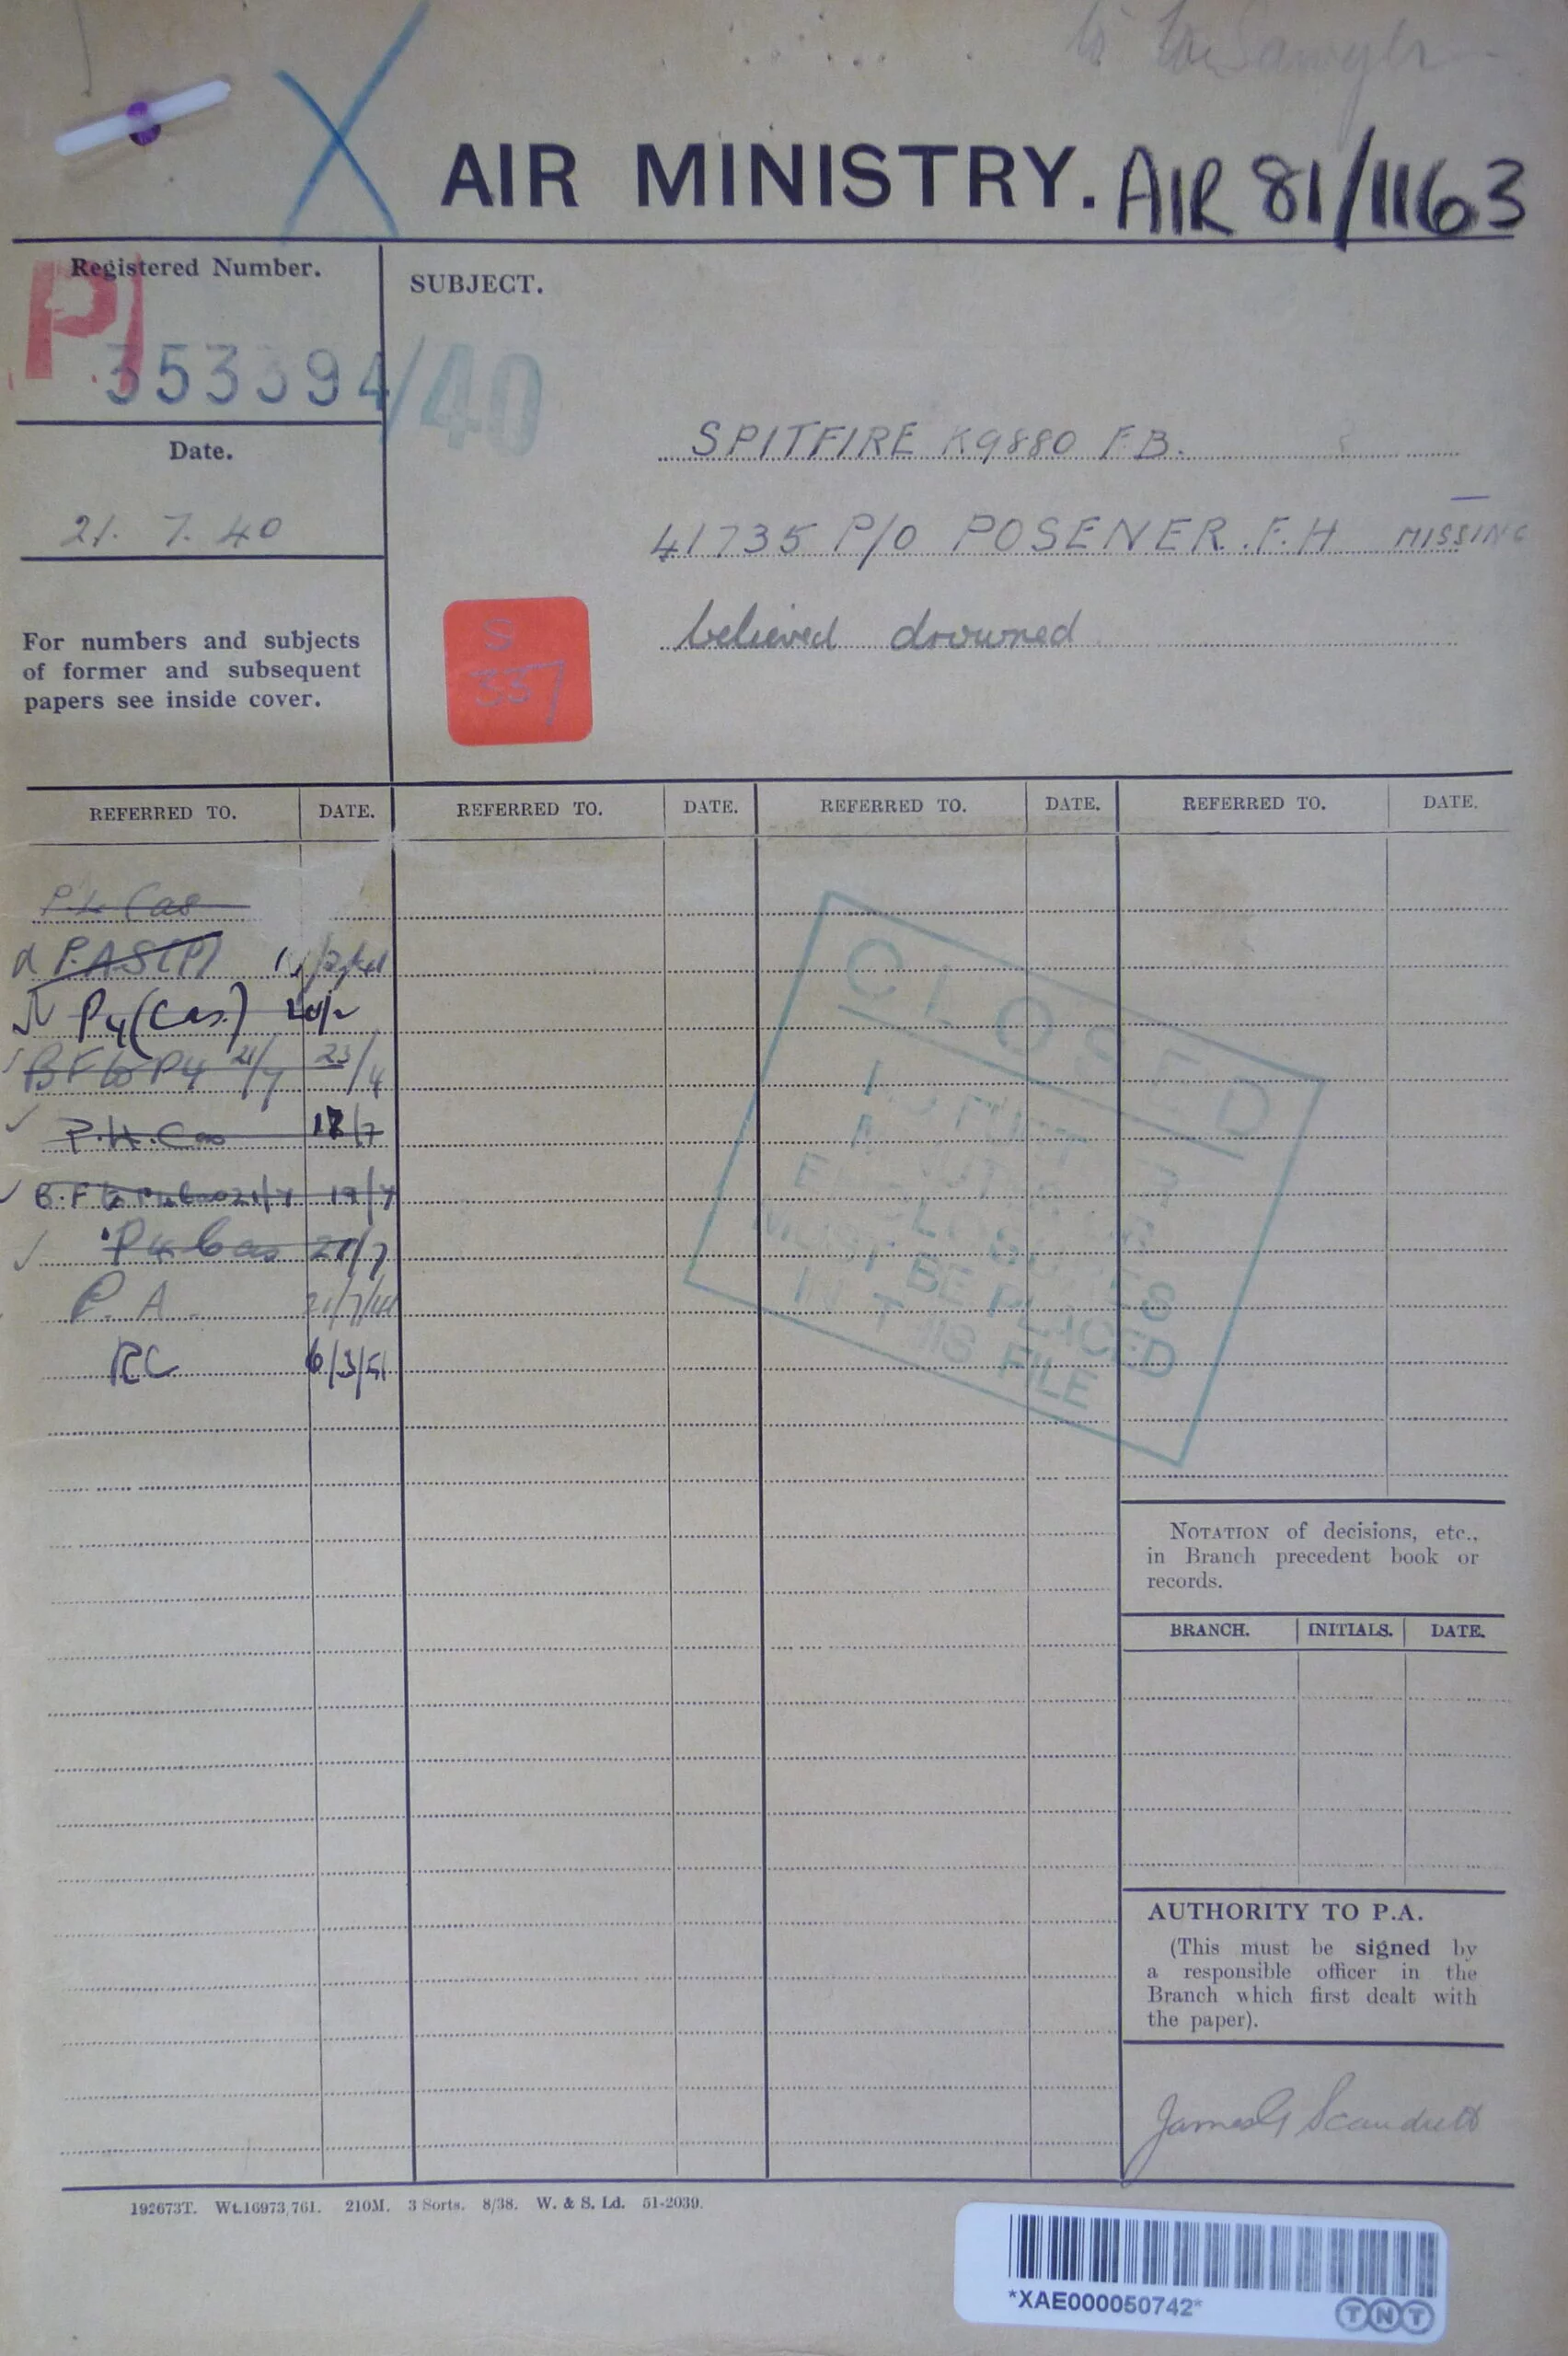 AIR MINISTRY. AIR 81/1163
Registered Number.
P
353394/40
SUBJECT.
Date.
21. 7. 40
SPITFIRE K9880 F.B.
41735 P/O POSENER. F.H MISSING
believed drowned
For numbers and subjects
of former and subsequent
papers see inside cover.
S
337
REFERRED TO. DATE. REFERRED TO. DATE. REFERRED TO. DATE. REFERRED TO. DATE.
P.4 Cas
P.A.S(P)
P4 (Cas.) 20/2
B F to P4 21/7 23/4
P.4. Cas 18/7
B.F to 21/7 19/7
P4 Cas 21/7
P. A. 21/7/41
RC 6/3/51
CLOSED
NO FURTHER
MINUTES OR
ENCLOSURES
MUST BE PLACED
IN THIS FILE
NOTATION of decisions, etc.,
in Branch precedent book or
records.
BRANCH. INITIALS. DATE.
AUTHORITY TO P.A.
(This must be signed by
a responsible officer in the
Branch which first dealt with
the paper).
James G Scandrett
192673T. Wt.16973/761. 210M. 3 Sorts. 8/38. W. & S. Ld. 51-2039.
*XAE000050742*
TNT